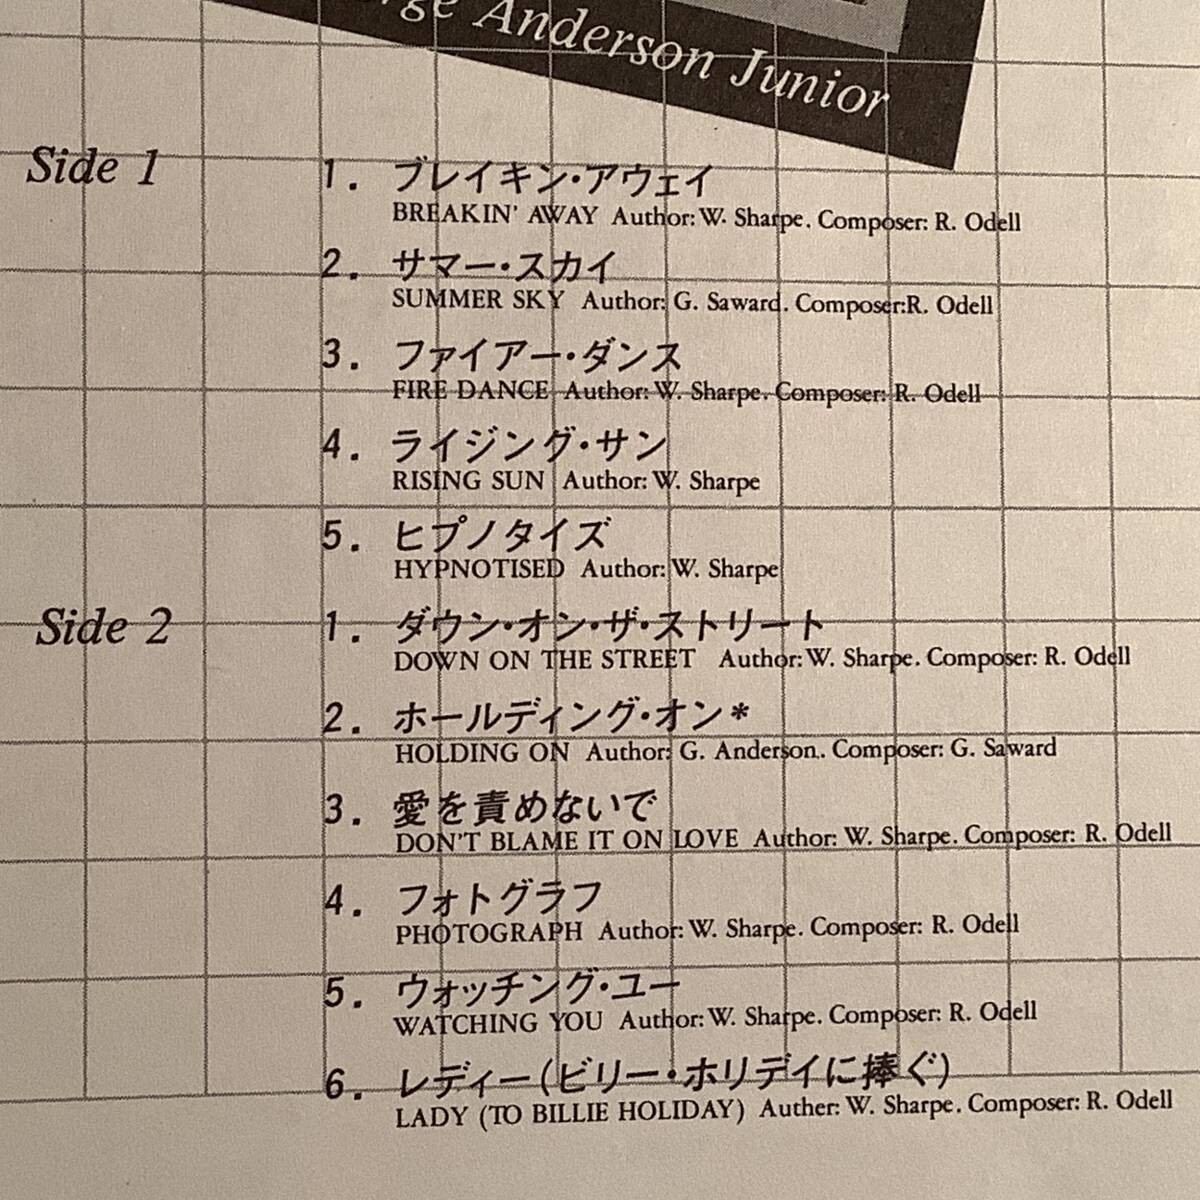 Anderson Junior
Side 1
1. ブレイキン・アウェイ
BREAKIN' AWAY Author: W. Sharpe. Composer: R. Odell
2. サマー・スカイ
SUMMER SKY Author: G. Saward. Composer:R. Odell
3. ファイアー・ダンス
FIRE DANCE Author: W. Sharpe. Composer: R. Odell
4. ライジング・サン
RISING SUN Author: W. Sharpe
5. ヒプノタイズ
HYPNOTISED Author: W. Sharpe
Side 2
1. ダウン・オン・ザ・ストリート
DOWN ON THE STREET Author: W. Sharpe. Composer: R. Odell
2. ホールディング・オン*
HOLDING ON Author: G. Anderson.. Composer: G. Saward
3. 愛を責めないで
DON'T BLAME IT ON LOVE Author: W. Sharpe. Composer: R. Odell
4. フォトグラフ
PHOTOGRAPH Author: W. Sharpe. Composer: R. Odell
5. ウォッチング・ユー
WATCHING YOU Author: W. Sharpe. Composer: R. Odell
6. レディー(ビリー・ホリデイに捧ぐ)
LADY (TO BILLIE HOLIDAY) Auther: W. Sharpe. Composer: R. Odell